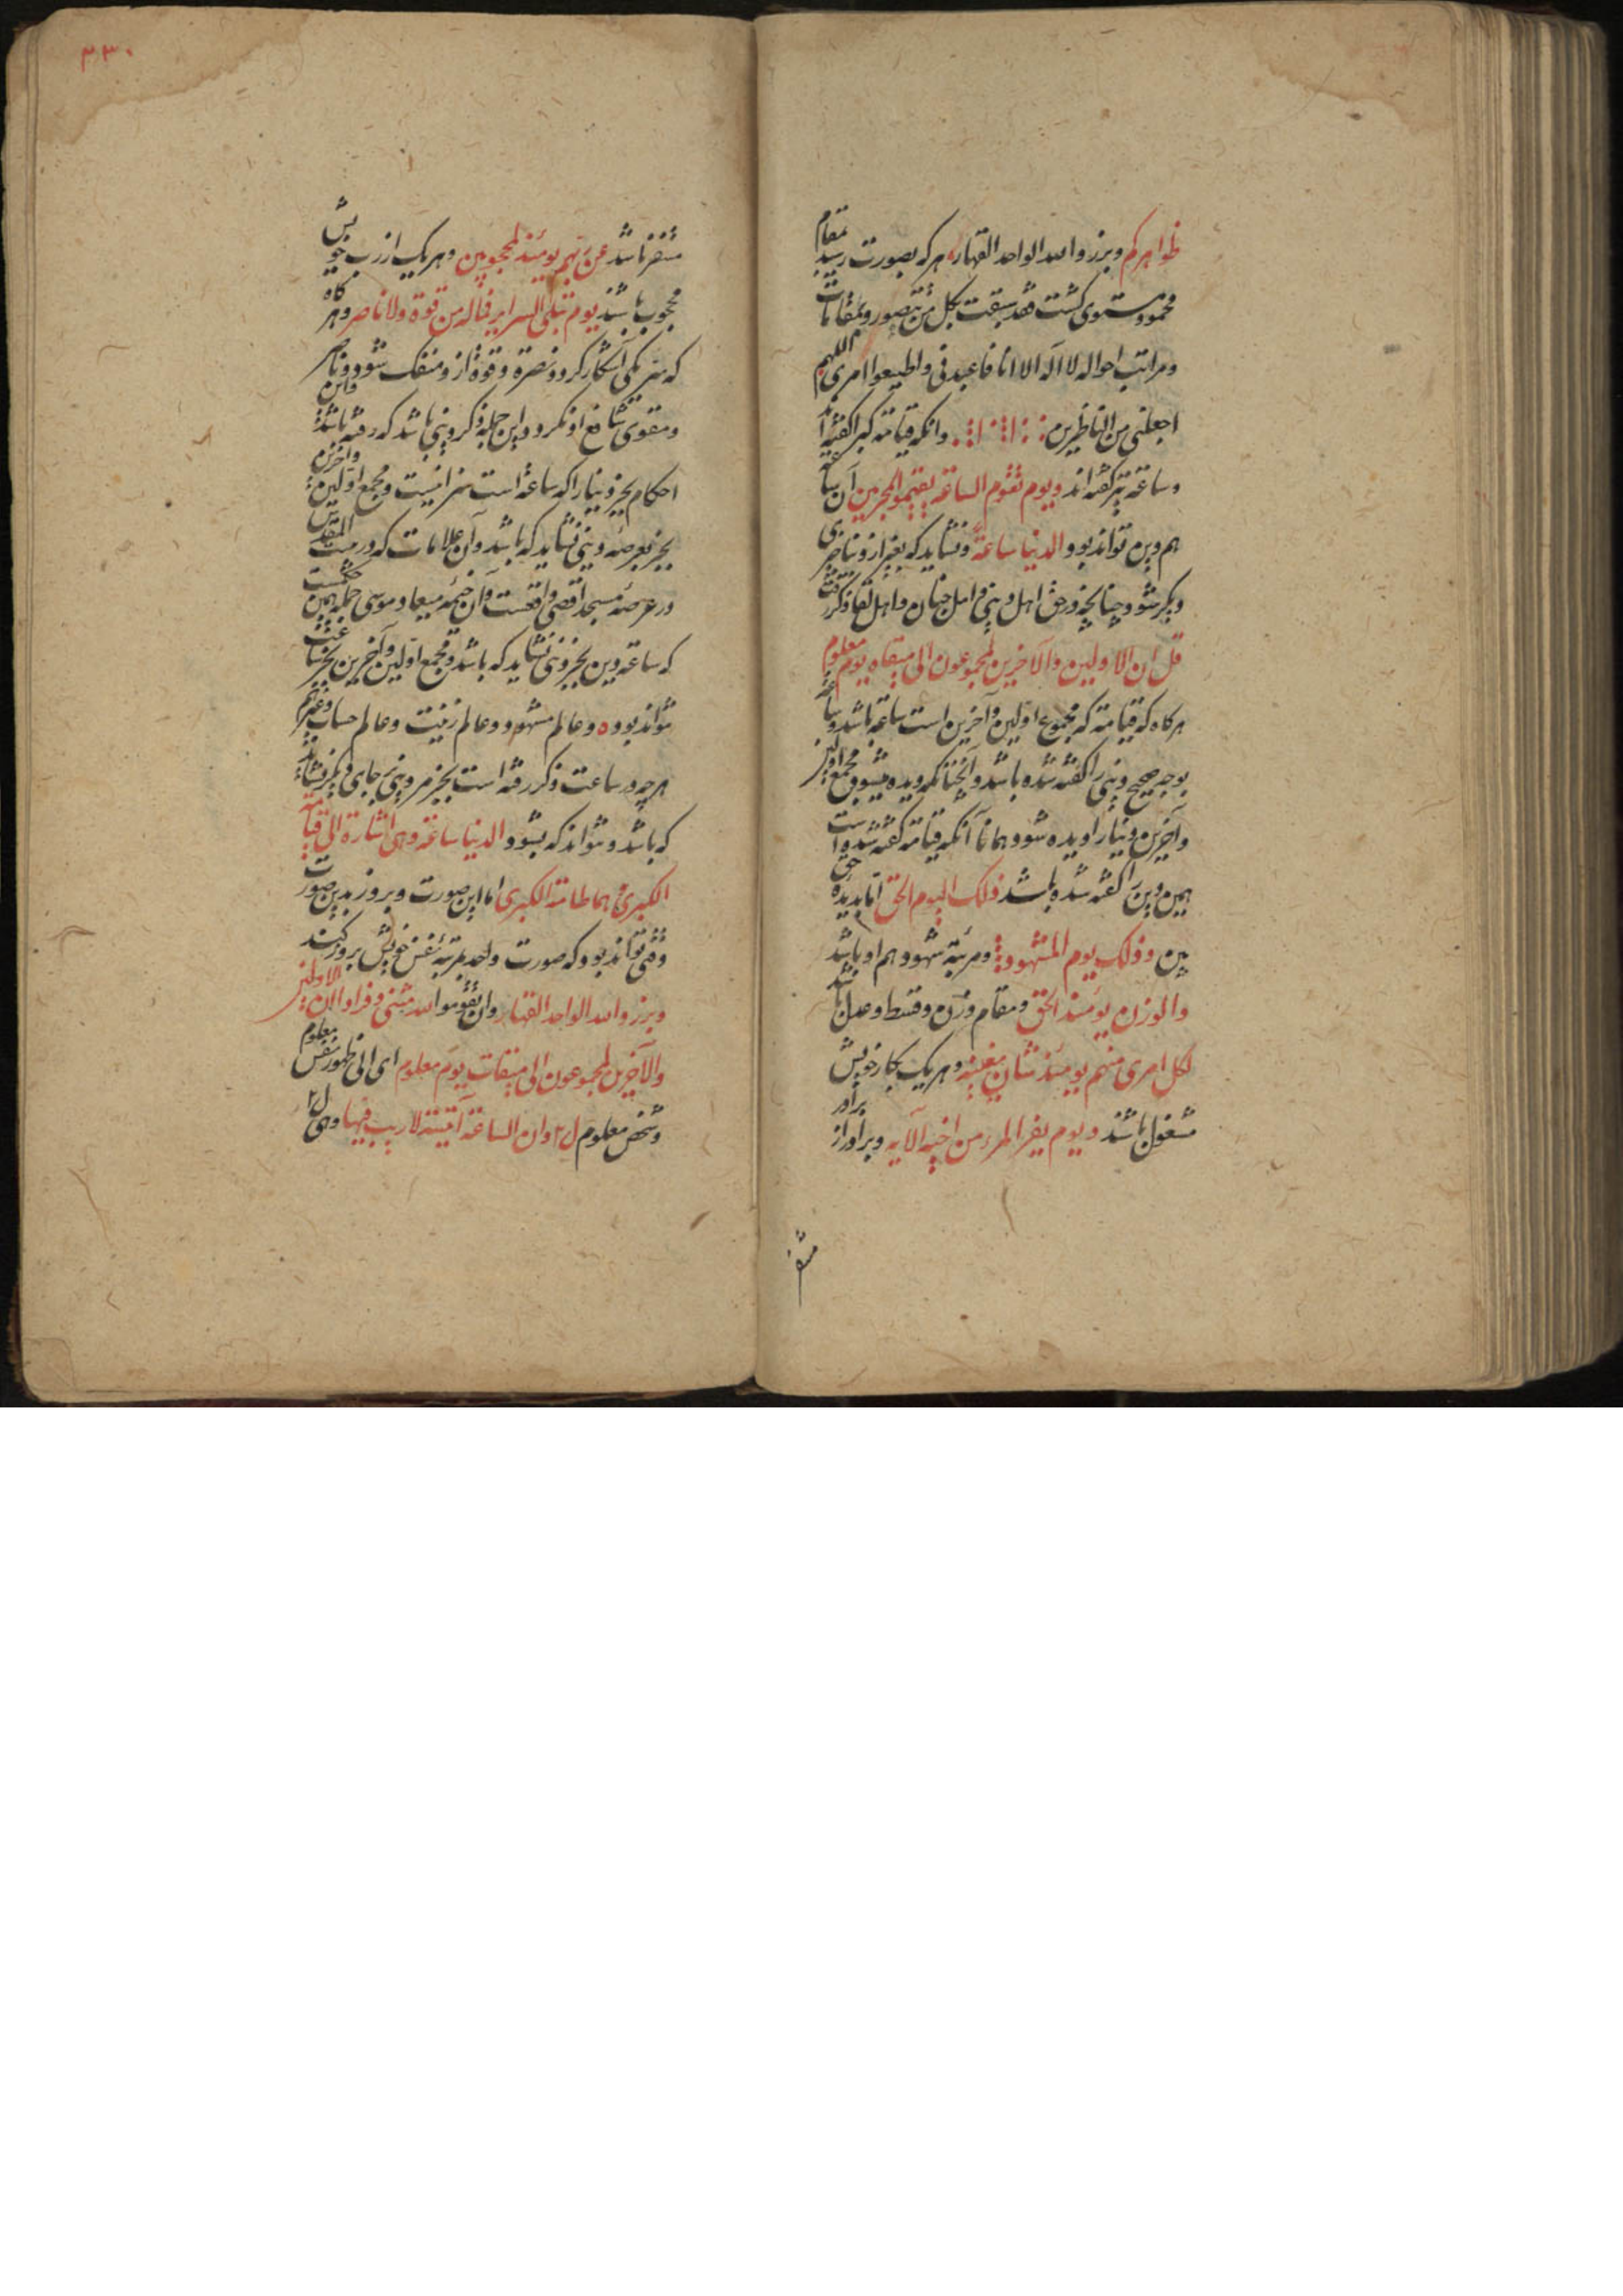 ظواهرکم وبرزوا لله الواحد القهار هرکه بصورت رسید بمقام
محمود مستوی کشت فقد سبقت بکل من تصور وبمقامات
ومراتب احواله لا اله الا انا فاعبدنی واطیعوا امری اللهم
اجعلنی من الناظرین وانکه قیامة کبرا کفته اند
وساعة نیز کفته اند ویوم تقوم الساعة یقسموالمجرمین آن ساعة
هم وین تواند بود والدنیا ساعة ونشاید که بغیر ازو بناحیتی
دیکر شود چنانچه در حق اهل وینی و اهل جنان واهل لقا ذکر رفت
قل ان الاولین والآخرین لمجموعون الی میقاه یوم معلوم
هرکاه که قیامة که مجموع اولین وآخرین است ساعة باشد وساعة
بوجه صحیح وینی را کفته شده باشد وآنچنانکه دیده میشود مجمع اولین
وآخرین دنیا را دیده شود همانا آنکه قیامة کفته شده است
همین وین را کفته شده باشد ذلک الیوم الحق اما بدیده حق
بین وذلک یوم المشهود ومرتبهٔ شهود هم او باشد
والوزن یومئذ الحق ومقام وزن وقسط وعدل باشد
لکل امری منهم یومئذ شان یغنیه وهریک بکار خویش
مشغول باشند ویوم یفر المرء من اخیه الآیه وبرادر از برادر
متنفر
متنفر باشد عن ربهم یومئذ لمحجوبین وهریک از رب خویش
محجوب باشند یوم تبلی السرایر فماله من قوة ولا ناصر وهرکاه
که سرّ یکی آشکار کردد ونصرة وقوة ازو منفک شود وناصر
ومقوی شافع او نکردد واین جمله ذکر وینی باشد که رفته باشد واین
احکام بجز دنیا را که ساعة است سزا نیست ومجمع اولین وآخرین
بجز بعرصهٔ وینی نشاید که باشد وآن علامات که در بیت المقدس
در عرصهٔ مسجد اقصی واقعست وآن خیمهٔ میعاد موسی جمله همین حکمست
که ساعة وین بجز وینی نشاید که باشد ومجمع اولین وآخرین بجز ساعت
نتواند بود وعالم مشهود وعالم زینت وعالم حساب وغیرهم
هرچه در ساعت ذکر رفته است بجز مر وینی جای دیکر نشاید
که باشد ونتواند که بشود والدنیا ساعة وهی اشارة الی قیامة
الکبری وهما طامة الکبری اما این صورت وبروز بدین صورت
وقتی تواند بود که صورت واحد بمرتبهٔ نفس خویش بروز کند
وبرزوا لله الواحد القهار وان تقوموا لله مثنی وفرادا ان الاولین
والآخرین لمجموعون الی میقات یوم معلوم ای الی ظهور نفس معلوم
وشخص معلوم ل۲ وان الساعة آتیة لا ریب فیها وهی ل۲
۳۳۰